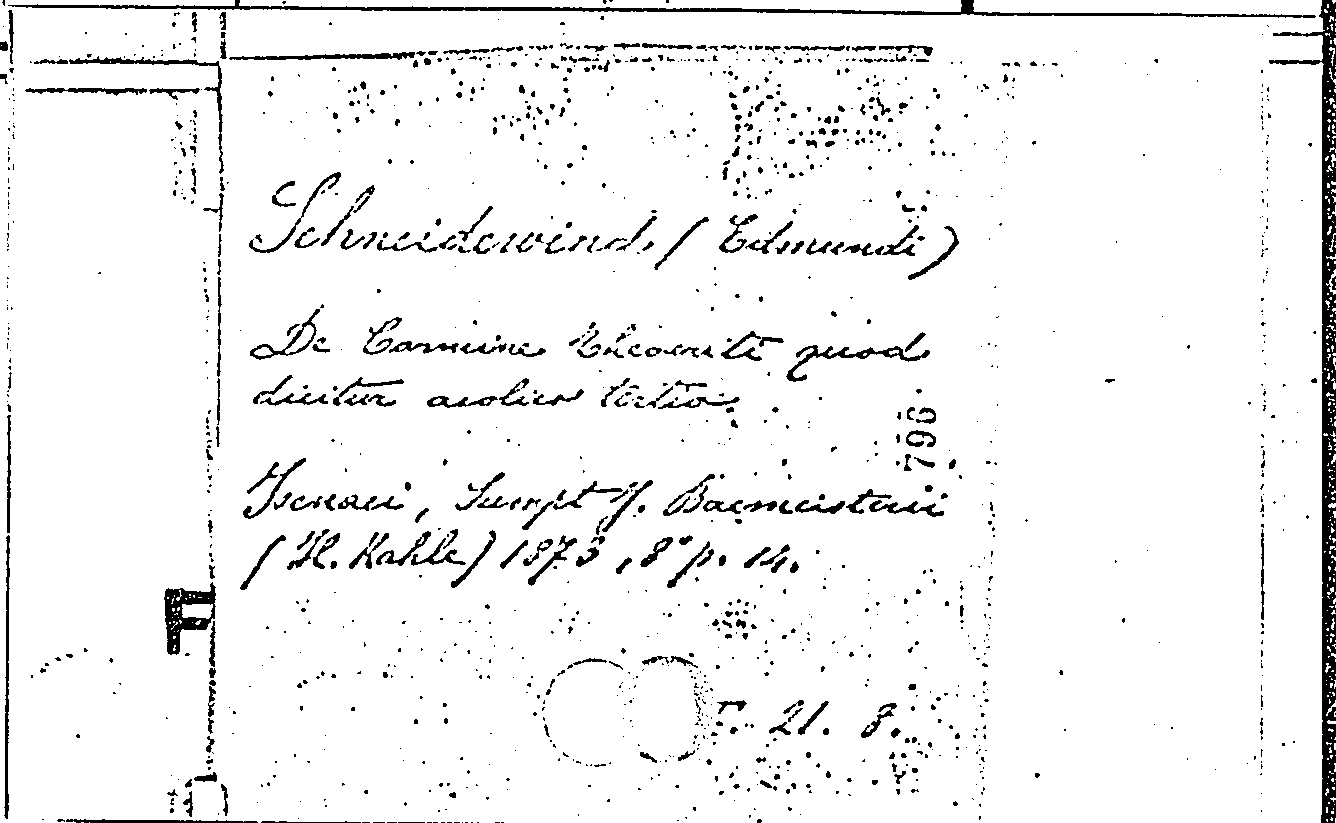 Schneidewind (Edmundi)
De Carmine Theocriti quod
dicitur aeolico tertio.
796
Isenaci, Sumpt J. Bacmeisteri
(H. Kahle) 1873, 8° p. 14.
F
F. 21. 8.